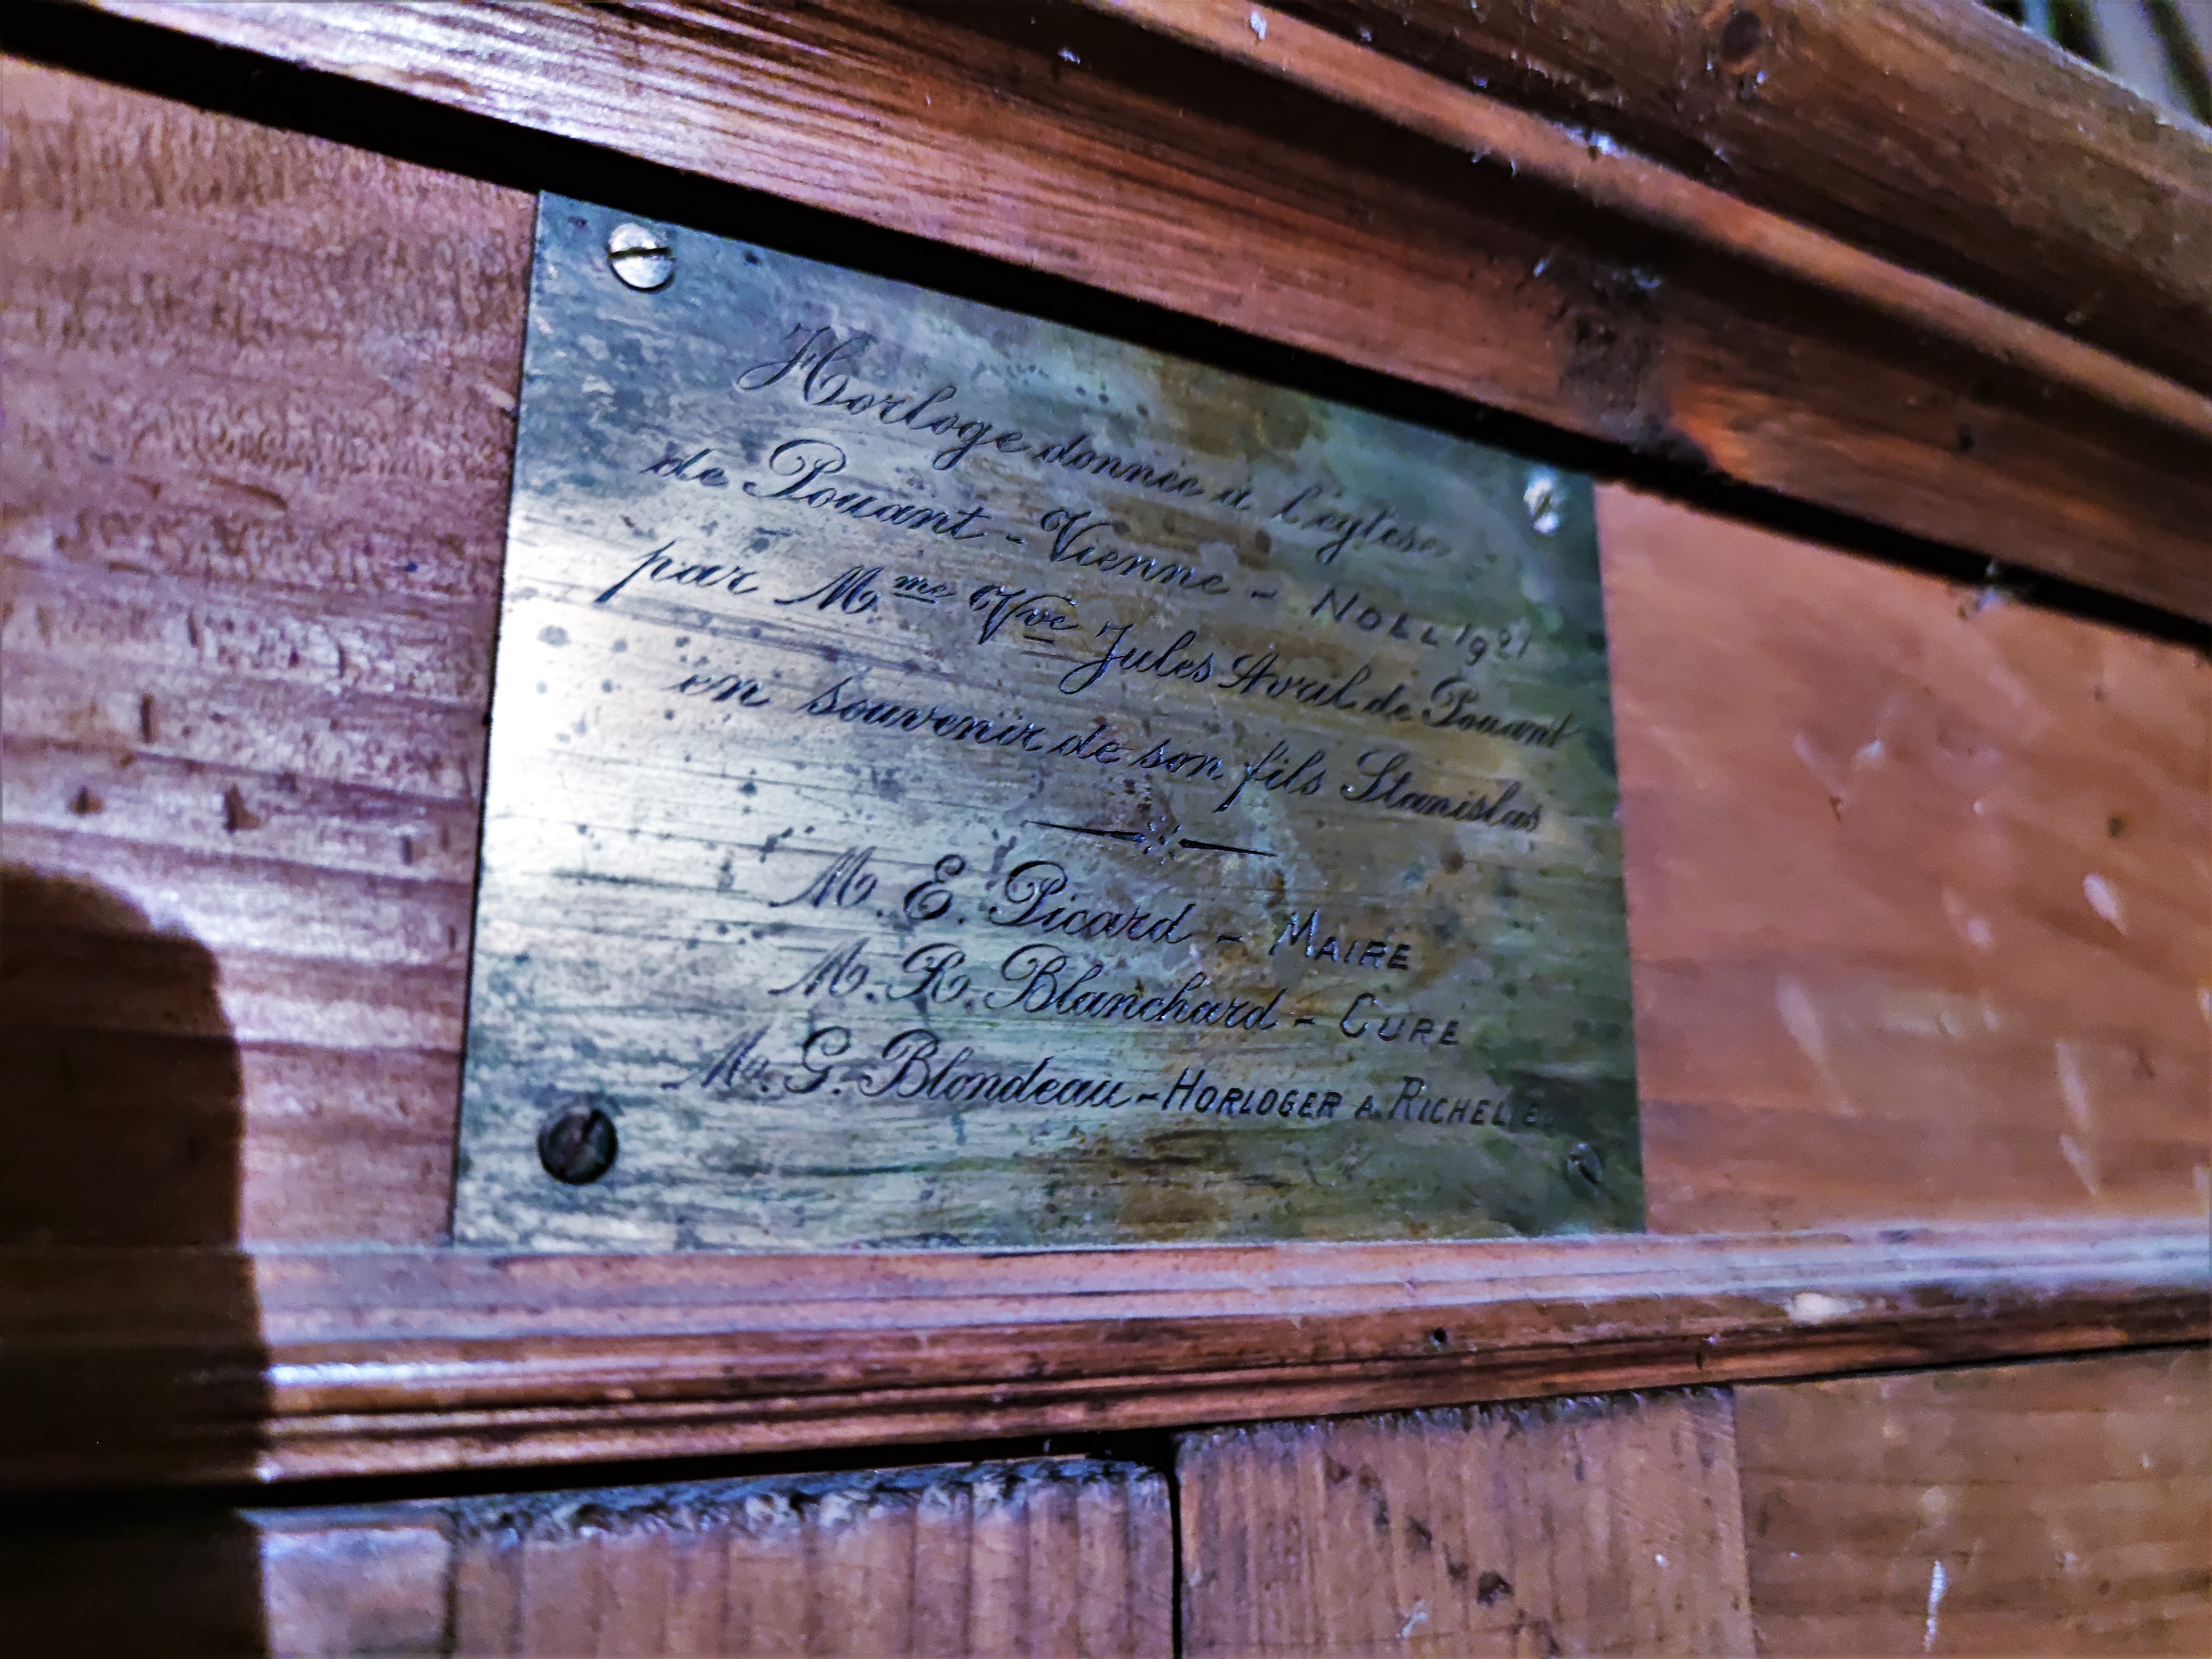 Horloge donnée à l'église
de Pouant - Vienne - NOLL 1921
par Mme Vve Jules Avril de Pouant
en souvenir de son fils Stanislas
M. E. Picard - MAIRE
M. R. Blanchard - CURÉ
Mn. G. Blondeau - HORLOGER A RICHELIEU